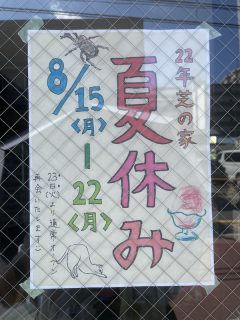 22年芝の家
夏休み
8/15
〈月〉
|
22
〈月〉
23日(火)より通常オープン
再会いたします○